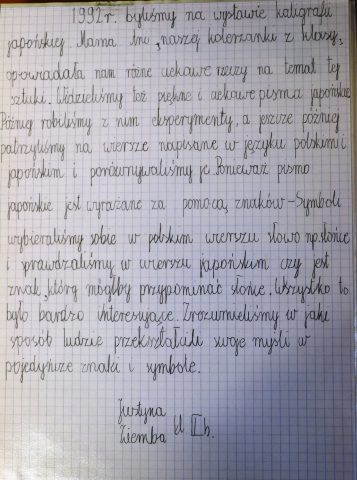 1992 r. byliśmy na wystawie kaligrafii
japońskiej. Mama Ani, naszej koleżanki z klasy,
opowiadała nam różne ciekawe rzeczy na temat tej
sztuki. Widzieliśmy też piękne i ciekawe pisma japońskie.
Później robiliśmy z nim eksperymenty, a jeszcze później
patrzyliśmy na wiersze napisane w języku polskim i
japońskim i porównywaliśmy je. Ponieważ pismo
japońskie jest wyrażane za pomocą znaków-Symboli
wybieraliśmy sobie w polskim wierszu słowo np. słońce
i sprawdzaliśmy w wierszu japońskim czy jest
znak, który mógłby przypominać słońce. Wszystko to
było bardzo interesujące. Zrozumieliśmy w jaki
sposób ludzie przekształcili swoje myśli w
pojedyńcze znaki i symbole.
Justyna
Ziemba kl II b.